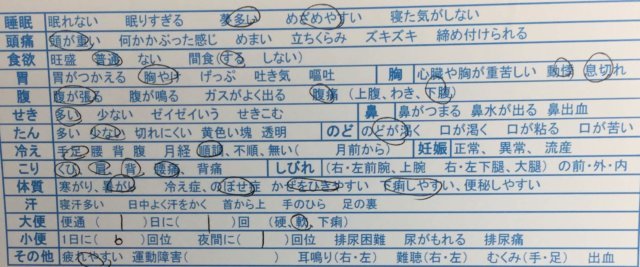 睡眠 眠れない 眠りすぎる 夢多い めざめやすい 寝た気がしない
頭痛 頭が重い 何かかぶった感じ めまい 立ちくらみ ズキズキ 締め付けられる
食欲 旺盛 普通 ない 間食(する しない)
胃 胃がつかえる 胸やけ げっぷ 吐き気 嘔吐 胸 心臓や胸が重苦しい 動悸 息切れ
腹 腹が張る 腹が鳴る ガスがよく出る 腹痛(上腹、わき、下腹)
せき 多い 少ない ゼイゼイいう せきこむ 鼻 鼻がつまる 鼻水が出る 鼻出血
たん 多い 少ない 切れにくい 黄色い塊 透明 のど のどが渇く 口が渇く 口が粘る 口が苦い
冷え 手足 腰 背 腹 月経 順調、不順、無い( 月前から) 妊娠 正常、異常、流産
こり くび、肩、背、腰痛、背痛 しびれ (右・左前腕、上腕 右・左下腿、大腿) の前・外・内
体質 寒がり、暑がり 冷え症、のぼせ症 かぜをひきやすい 下痢しやすい、便秘しやすい
汗 寝汗多い 日中よく汗をかく 首から上 手のひら 足の裏
大便 便通( 1 )日に( 1 )回 (硬、軟、下痢)
小便 1日に( 6 )回位 夜間に( 1 )回位 排尿困難 尿がもれる 排尿痛
その他 疲れやすい 運動障害( ) 耳鳴り(右・左) 難聴(右・左) むくみ(手・足) 出血